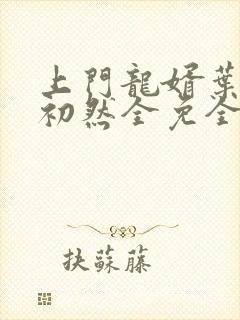 上門龍婿葉
初然全免全
抉蘇藤